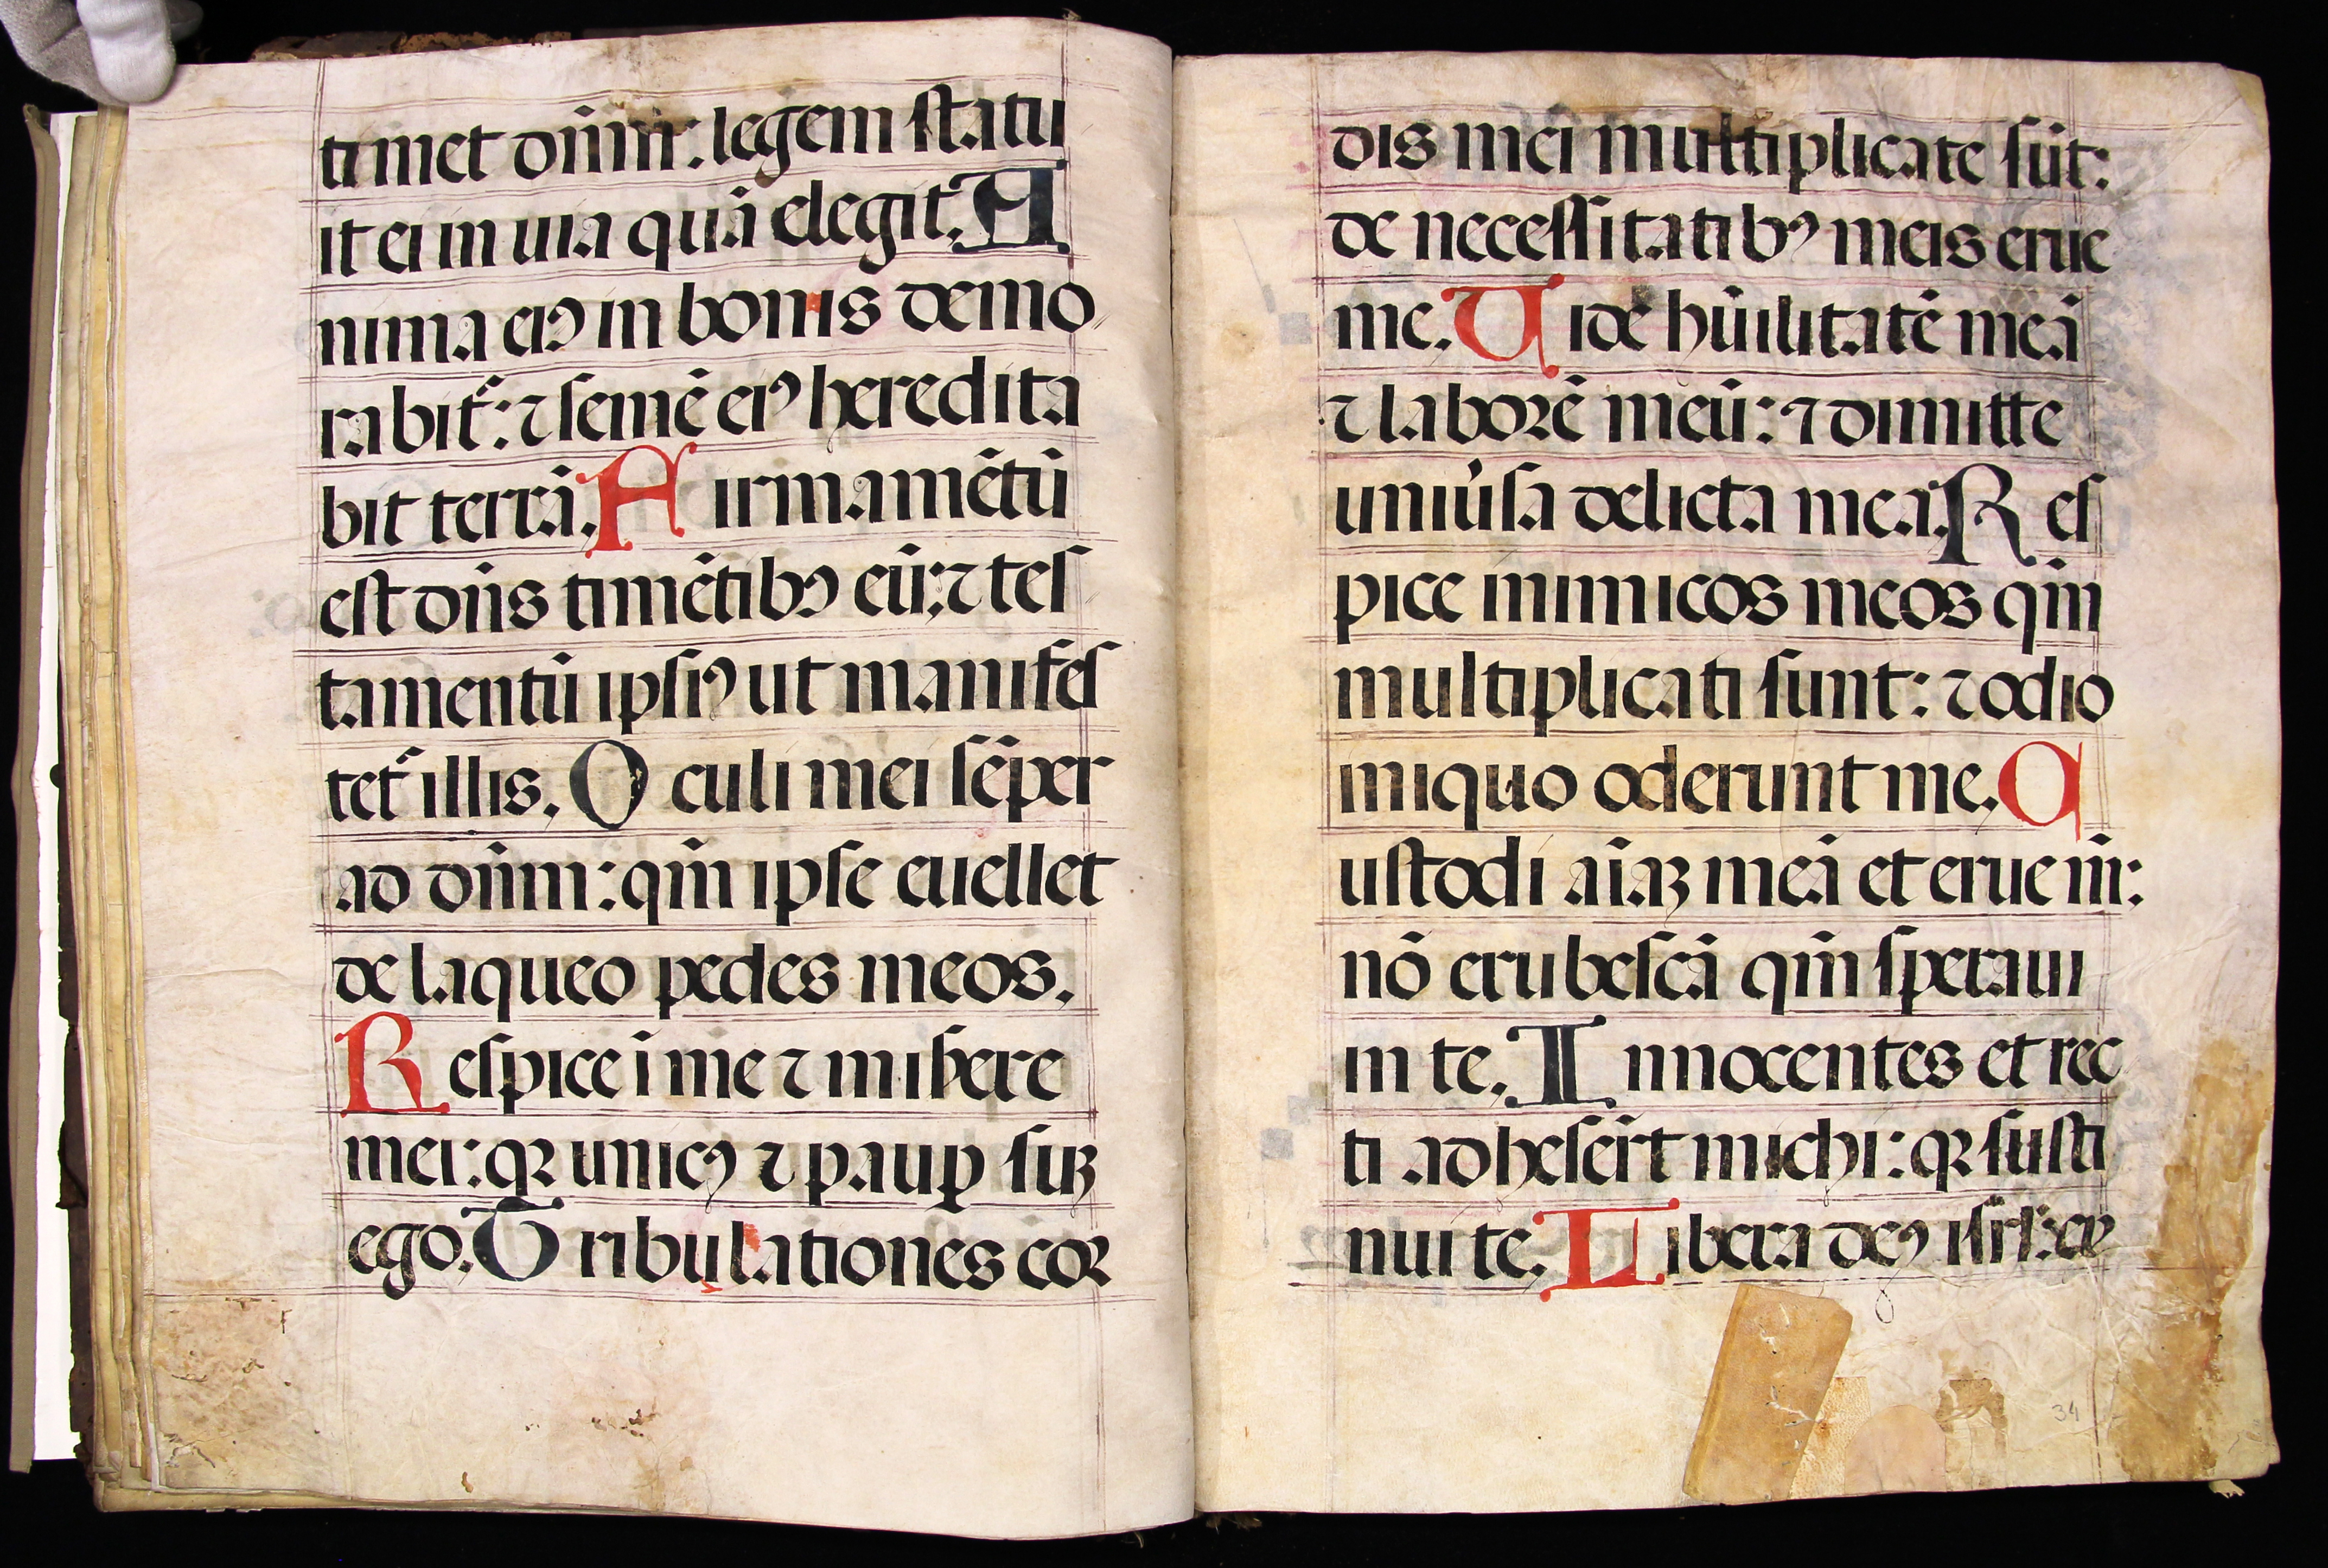 timet dñm: legem statu
it ei in uia quā elegit. A
nima eiꝰ in bonis demo
rabit᷑: ⁊ semē eiꝰ heredita
bit terrā. F irmamētū
est dñs timētibꝰ eū: ⁊ tes
tamentū ipsiꝰ ut manifes
tet᷑ illis. O culi mei sēper
ad dñm: qm̄ ipse euellet
de laqueo pedes meos.
R espice ī me ⁊ miſere
mei: qꝛ unicꝰ ⁊ paup̱ suꝫ
ego. T ribulationes cor
dis mei multiplicate sūt:
de necessitatibꝰ meis erue
me. U ide hūilitatē meā
⁊ laborē meū: ⁊ dimitte
uniu̓sa delicta mea. R es
pice inimicos meos qm̄
multiplicati sunt: ⁊ odio
iniquo oderunt me. C
ustodi aīaꝫ meā et erue m̄:
nō erubescā qm̄ speraui
in te. I nnocentes et rec
ti adheser̄t michi: qꝛ susti
nui te. L ibera deꝰ isrl̄: ex
34